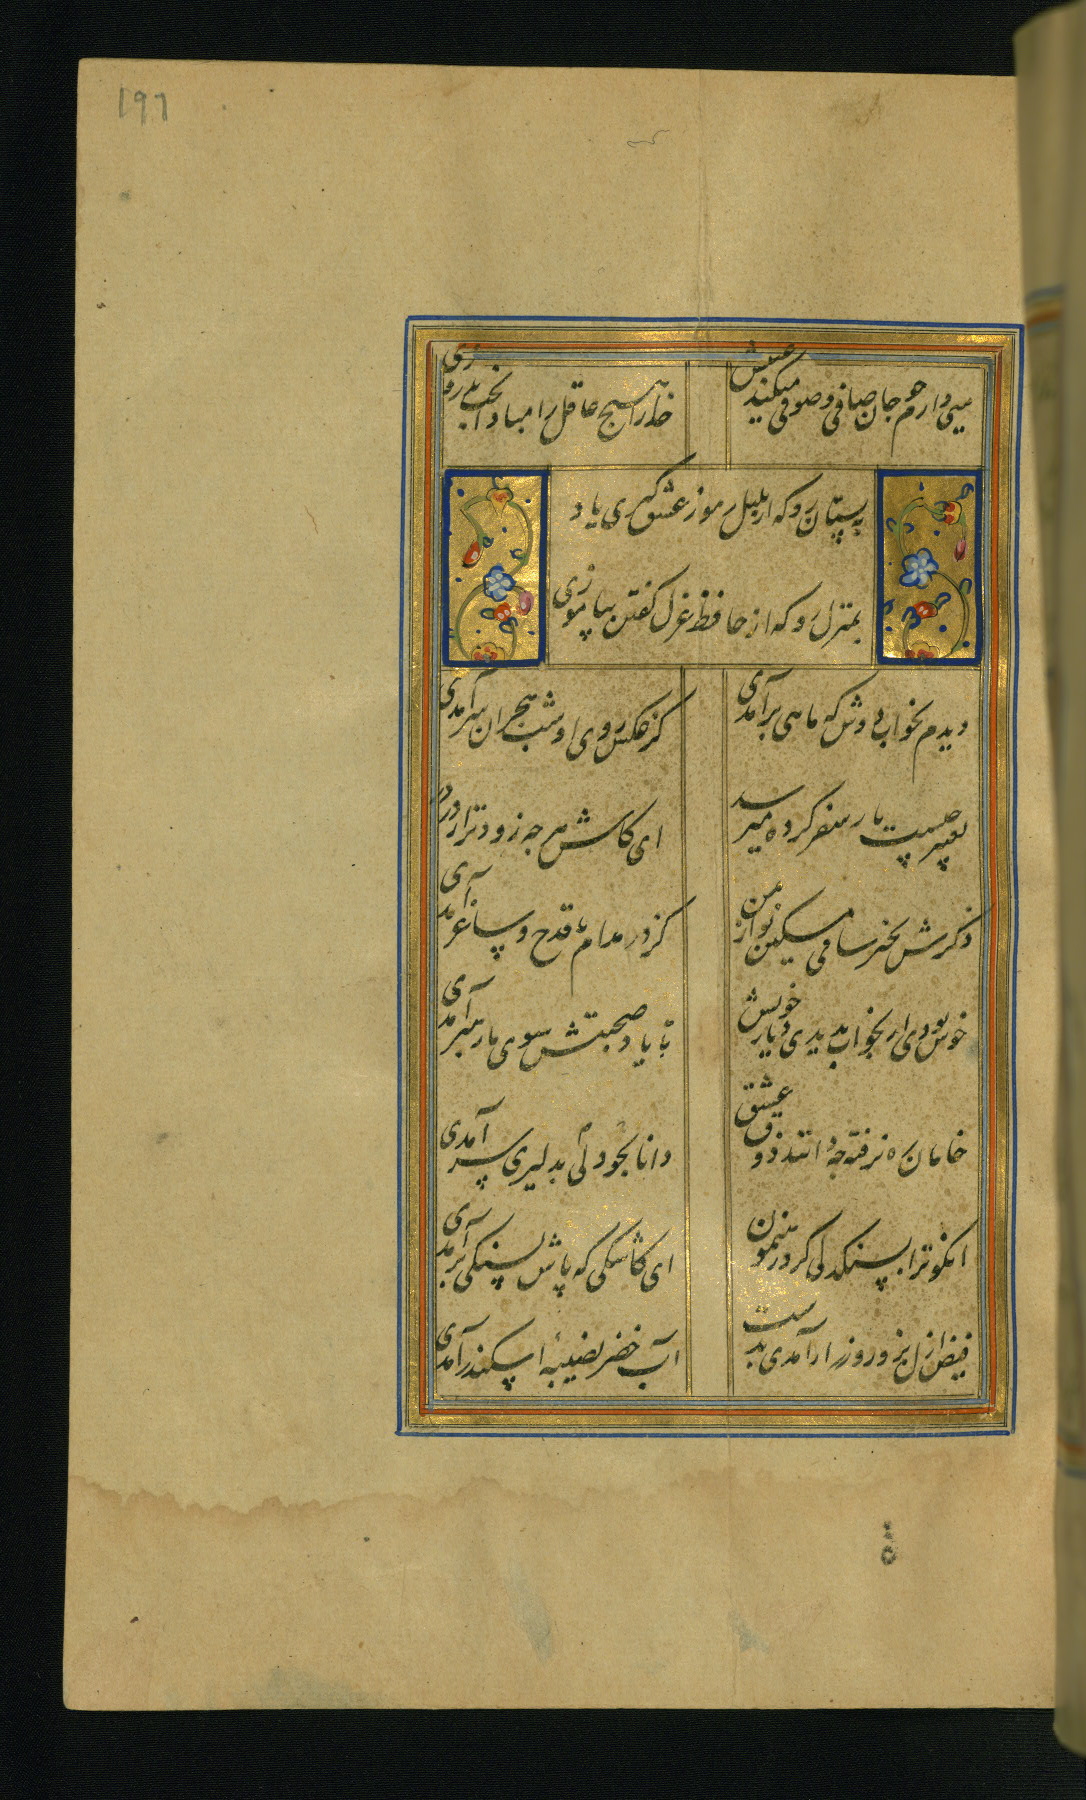 ۱۹۶
میی دارم چو جان صافی و صوفی میکند عیبش
خدا را هیچ عاقل را مبادا بخت بد روزی
ببستان رو که از بلبل رموز عشق گیری یاد
بمنزل رو که از حافظ غزل گفتن بیاموزی
دیدم بخواب دوش که ماهی برآمدی
کز عکس روی او شب هجران سرآمدی
تعبیر چیست یار سفر کرده میرسد
ای کاش هر چه زودتر از در درآمدی
ذکرش بخیر ساقی مسکین نواز من
کز در مدام با قدح و ساغر آمدی
خوش بودی ار بخواب بدیدی دیار خویش
تا یاد صحبتش سوی ما رهبر آمدی
خامان ره نرفته چه دانند ذوق عشق
دانا بجو دلی بدلیری سر آمدی
انکو ترا بسنگدلی کرد رهنمون
ای کاشکی که پاش بسنگی برآمدی
فیض ازل بزور و زر ار آمدی بدست
آب خضر نصیبه اسکندر آمدی